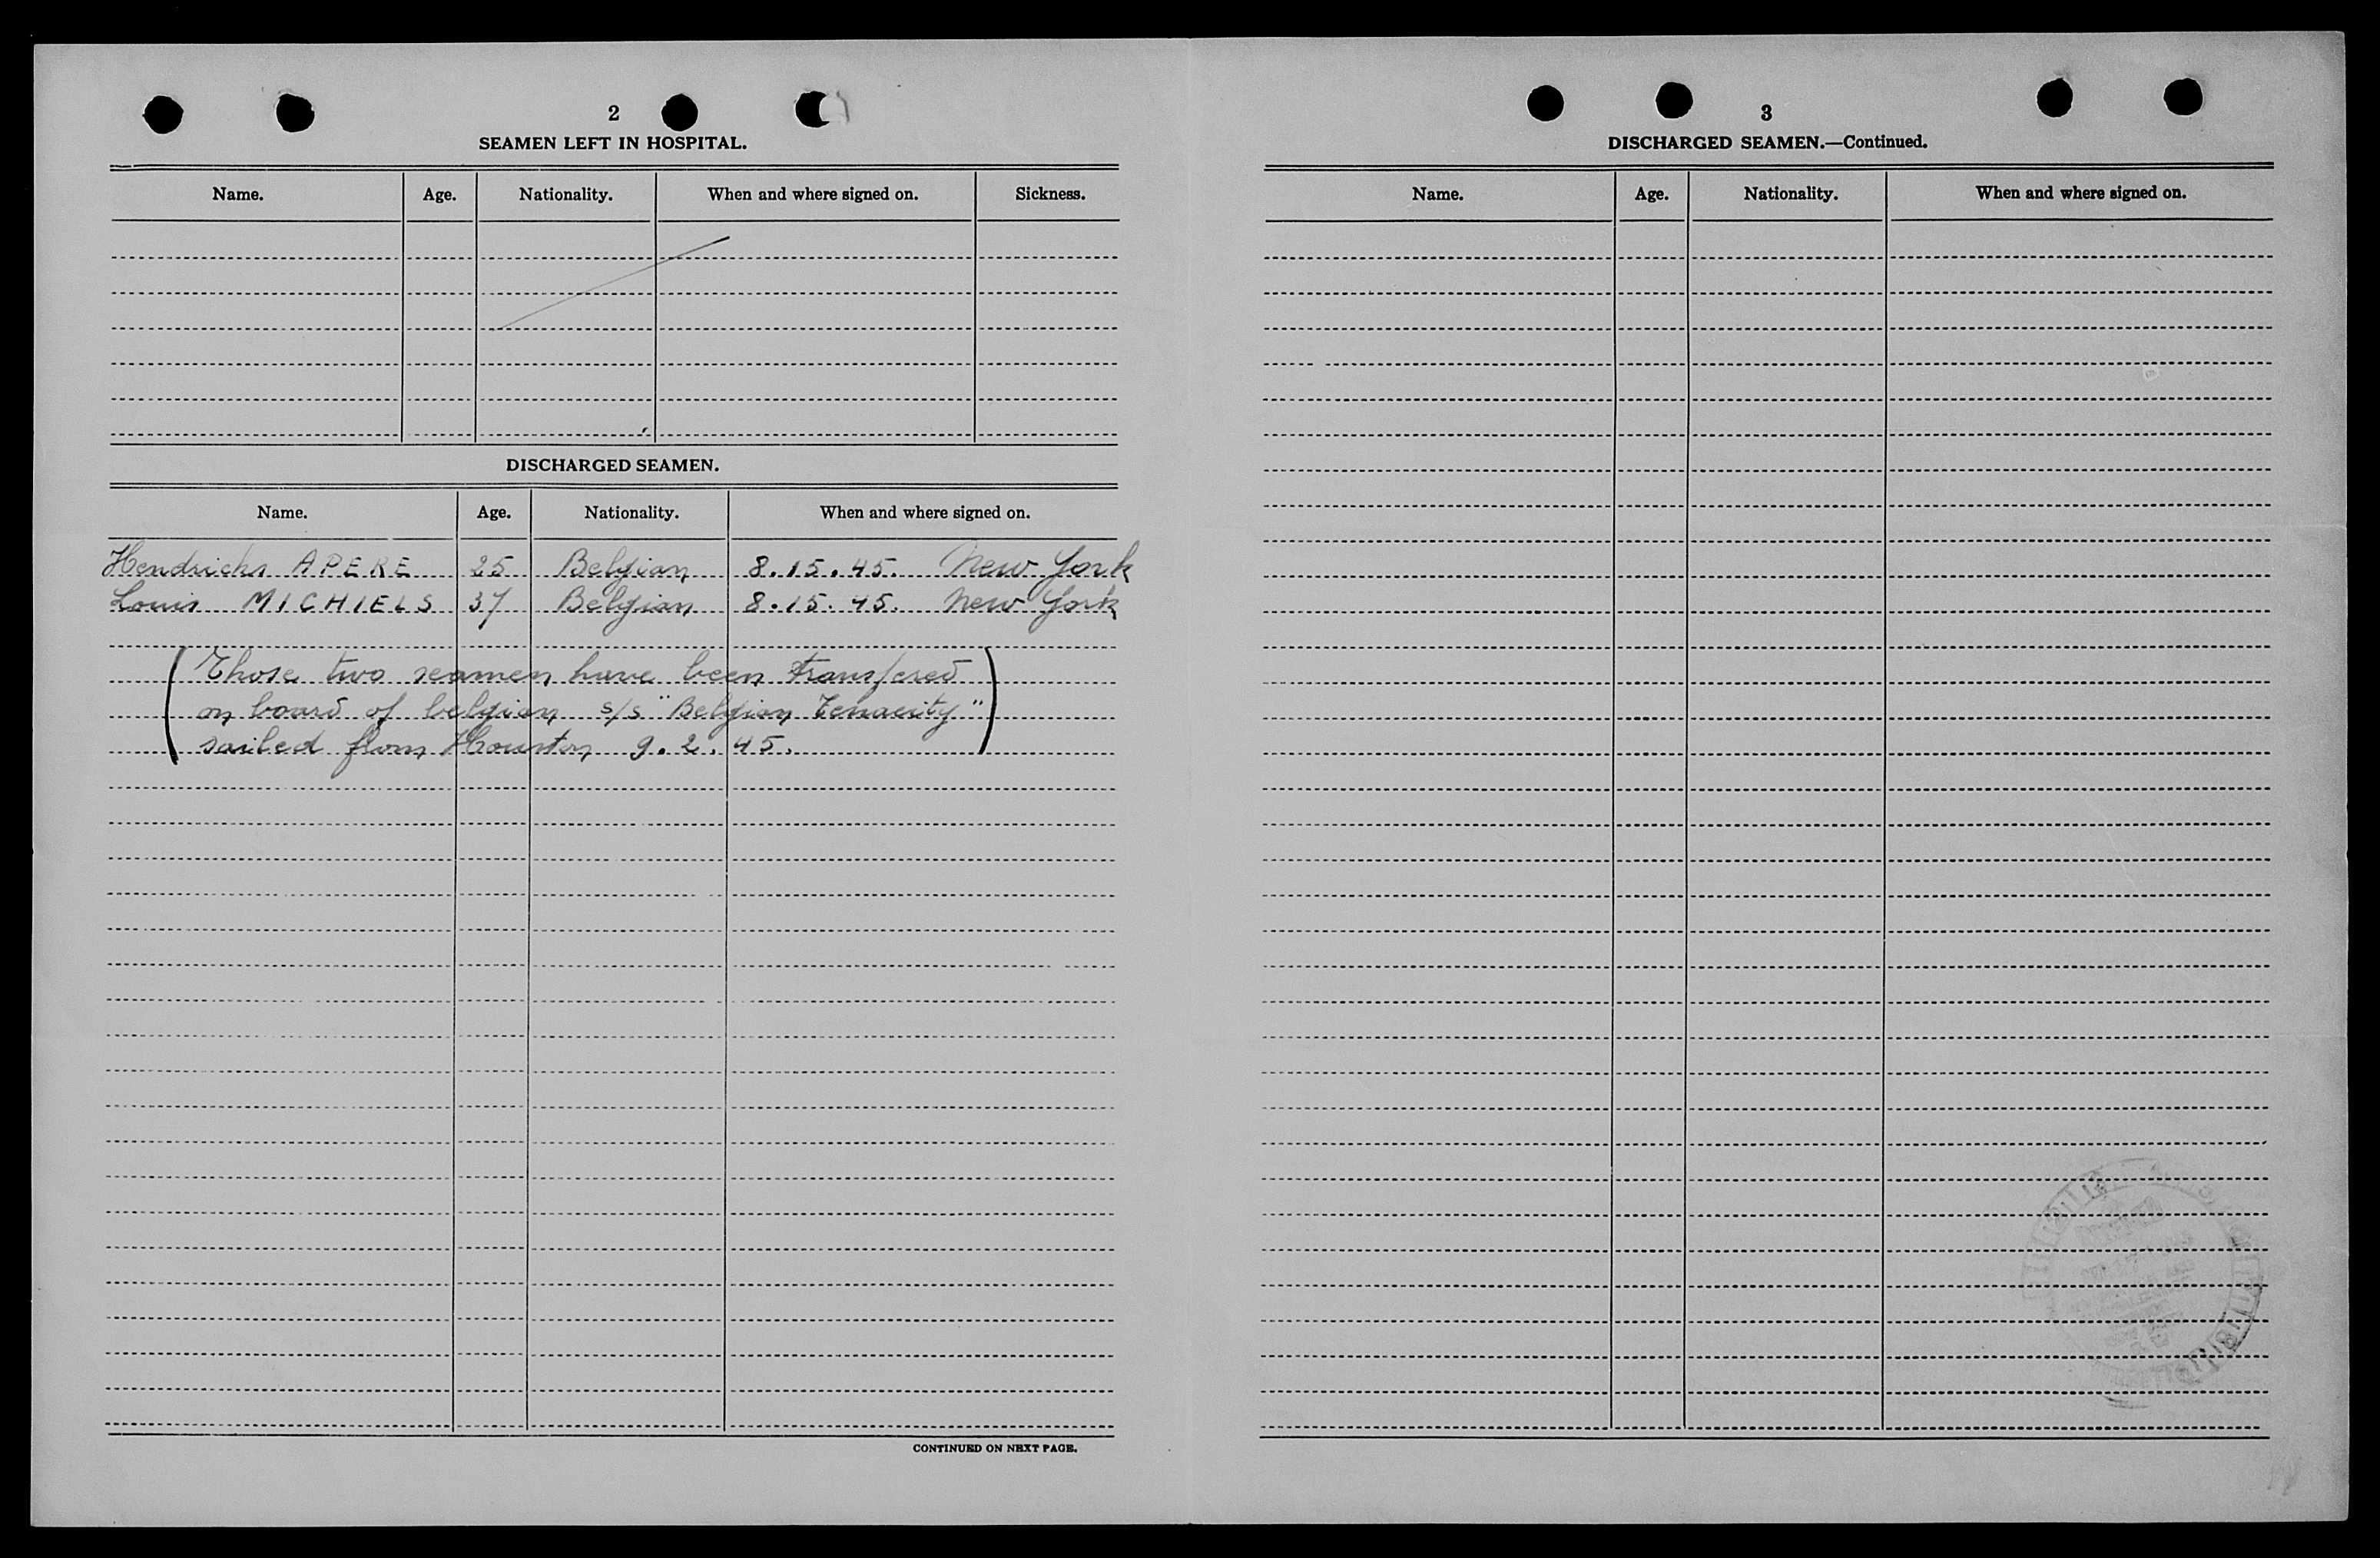 2
SEAMEN LEFT IN HOSPITAL.
Name. Age. Nationality. When and where signed on. Sickness.
DISCHARGED SEAMEN.
Name. Age. Nationality. When and where signed on.
Hendrickx APERE 25 Belgian 8.15.45. New York
Louis MICHIELS 37 Belgian 8.15.45. New York
(Those two seamen have been transfered
on board of belgian s/s "Belgian Tenacity"
sailed from Houston 9.2.45.)
CONTINUED ON NEXT PAGE.
3
DISCHARGED SEAMEN.—Continued.
Name. Age. Nationality. When and where signed on.